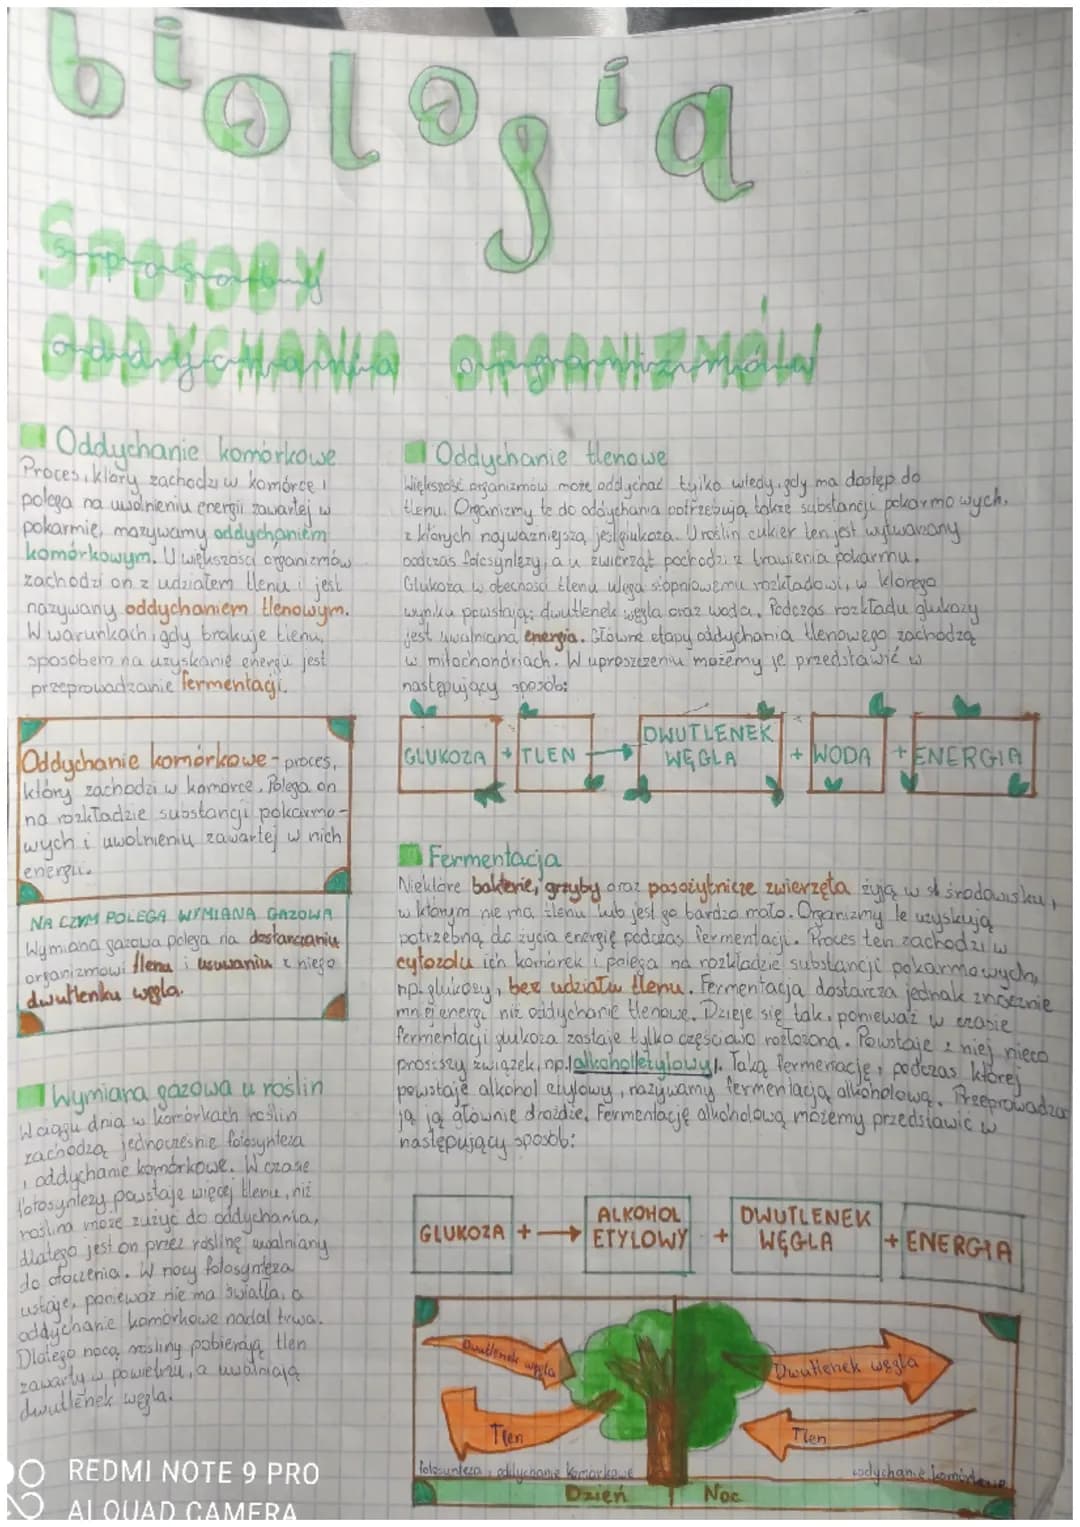 biologia
Sposoby
oddychania organizmów
Oddychanie komórkowe
Proces, który zachodzi w komórce i
polega na uwolnieniu energii zawartej w
pokarmie, nazywamy oddychaniem
komórkowym. U większości organizmów
zachodzi on z udziałem tlenu i jest
nazywany oddychaniem tlenowym.
W warunkach, gdy brakuje tlenu,
sposobem na uzyskanie energii jest
przeprowadzanie fermentacji.
Oddychanie komórkowe - proces,
który zachodzi w komórce. Polega on
na rozkładzie substancji pokarmo-
wych i uwolnieniu zawartej w nich
energii.
NA CZYM POLEGA WYMIANA GAZOWA
Wymiana gazowa polega na dostarczaniu
organizmowi tlenu i usuwaniu z niego
dwutlenku węgla.
Wymiana gazowa u roślin
W ciągu dnia w komórkach roślin
zachodzą jednocześnie fotosynteza
i oddychanie komórkowe. W czasie
fotosyntezy powstaje więcej tlenu, niż
roślina może zużyć do oddychania,
dlatego jest on przez roślinę uwalniany
do otoczenia. W nocy fotosynteza
ustaje, ponieważ nie ma światła, a
oddychanie komórkowe nadal trwa.
Dlatego nocą rośliny pobierają tlen
zawarty w powietrzu, a uwalniają
dwutlenek węgla.
Oddychanie tlenowe
Większość organizmów może oddychać tylko wtedy, gdy ma dostęp do
tlenu. Organizmy te do oddychania potrzebują także substancji pokarmowych,
z których najważniejszą jest glukoza. U roślin cukier ten jest wytwarzany
podczas fotosyntezy, a u zwierząt pochodzi z trawienia pokarmu.
Glukoza w obecności tlenu ulega stopniowemu rozkładowi, w którego
wyniku powstają: dwutlenek węgla oraz woda. Podczas rozkładu glukozy
jest uwalniana energia. Główne etapy oddychania tlenowego zachodzą
w mitochondriach. W uproszczeniu możemy je przedstawić w
następujący sposób:
GLUKOZA + TLEN → DWUTLENEK WĘGLA + WODA + ENERGIA
Fermentacja
Niektóre bakterie, grzyby oraz pasożytnicze zwierzęta żyją w środowisku,
w którym nie ma tlenu lub jest go bardzo mało. Organizmy te uzyskują
potrzebną do życia energię podczas fermentacji. Proces ten zachodzi w
cytozolu ich komórek i polega na rozkładzie substancji pokarmowych,
np. glukozy, bez udziału tlenu. Fermentacja dostarcza jednak znacznie
mniej energii niż oddychanie tlenowe. Dzieje się tak, ponieważ w czasie
fermentacji glukoza zostaje tylko częściowo rozłożona. Powstaje z niej nieco
prostszy związek, np. alkohol etylowy. Taką fermentację, podczas której
powstaje alkohol etylowy, nazywamy fermentacją alkoholową. Przeprowadzają
ją ją głownie drożdże. Fermentację alkoholową możemy przedstawić w
następujący sposób:
GLUKOZA + → ALKOHOL ETYLOWY + DWUTLENEK WĘGLA + ENERGIA
Dwutlenek węgla
Dwutlenek węgla
Tlen
Tlen
fotosynteza, oddychanie komórkowe
oddychanie komórkowe
Dzień
Noc
REDMI NOTE 9 PRO
AI QUAD CAMERA